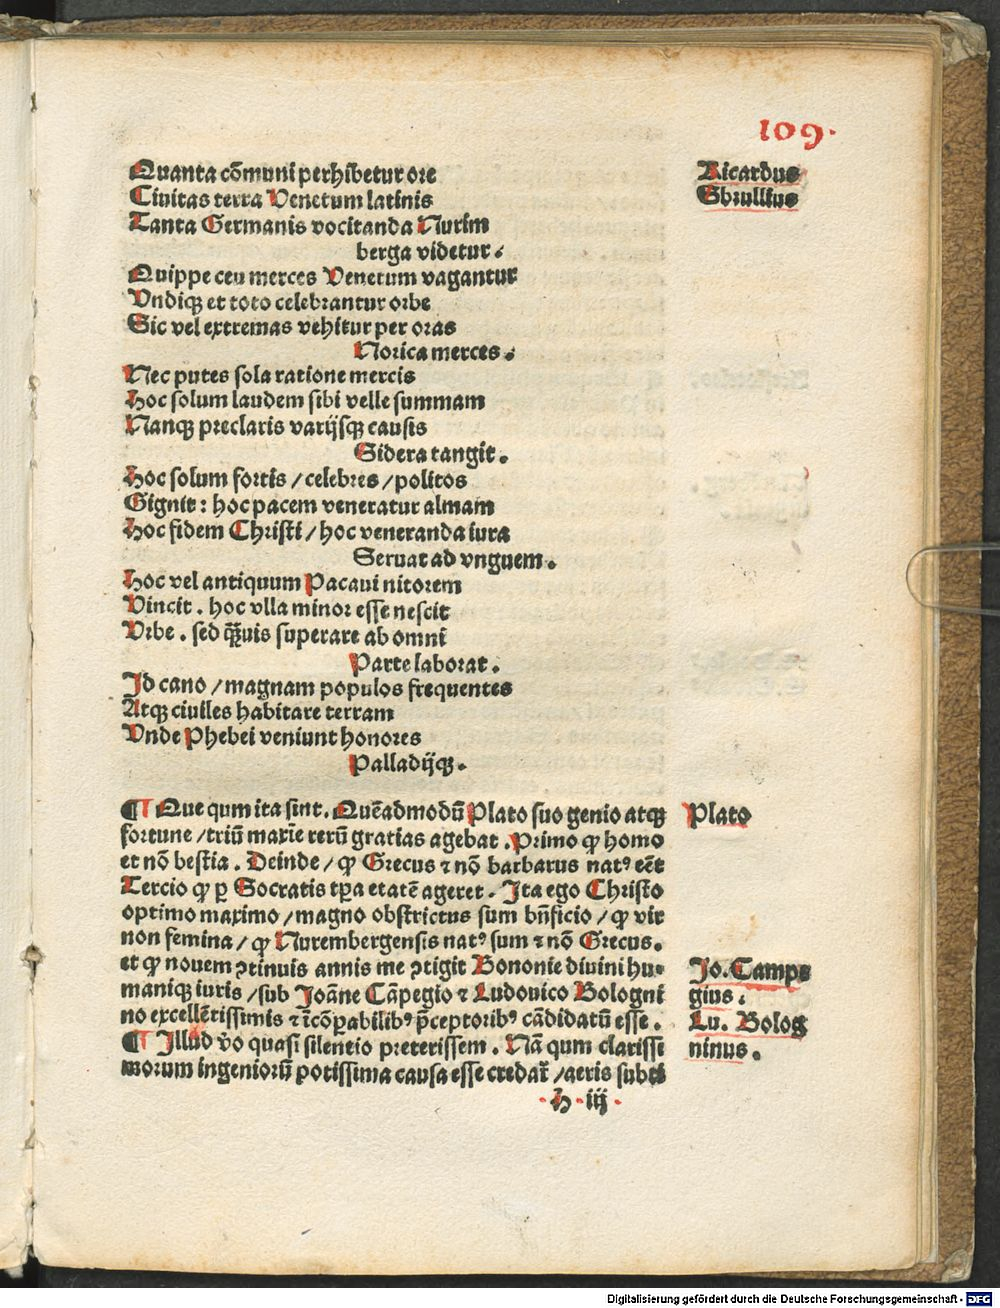 109.
Quanta cōmuni perhibetur ore
Ciuitas terra Venetum latinis
Tanta Germanis vocitanda Nurim
berga videtur.
Quippe ceu merces Venetum vagantur
Vndiqꝫ et toto celebrantur orbe
Sic vel extremas vehitur per oras
Norica merces.
Nec putes sola ratione mercis
Hoc solum laudem sibi velle summam
Nanqꝫ preclaris varijsqꝫ causis
Sidera tangit.
Hoc solum fortis / celebres / politos
Gignit: hoc pacem veneratur almam
Hoc fidem Christi / hoc veneranda iura
Seruat ad vnguem.
Hoc vel antiquum Pacaui nitorem
Vincit. hoc vlla minor esse nescit
Vrbe. sed qꝫuis superare ab omni
Parte laborat.
Id cano / magnam populos frequentes
Atqꝫ ciuiles habitare terram
Vnde Phebei veniunt honores
Palladijqꝫ.
Ricardus
Sbrullius
¶ Que qum ita sint. Quēadmodū Plato suo genio atqꝫ
fortune / triū maxīe rerū gratias agebat. Primo ꝙ homo
et nō bestia. Deinde / ꝙ Grecus ⁊ nō barbarus natꝰ eēt
Tercio ꝙ ꝑ Socratis tꝑa etatē ageret. Ita ego Christo
optimo maximo / magno obstrictus sum bn̄ficio / ꝙ vir
non femina / ꝙ Nurembergensis natꝰ sum ⁊ nō Grecus.
et ꝙ nouem ꝯtinuis annis me ꝯtigit Bononie diuini hu-
maniqꝫ iuris / sub Joāne Cāpegio ⁊ Ludouico Bologni
no excellētissimis ⁊ īcōꝑabilibꝰ p̄ceptoribꝰ cādidatū esse.
¶ Illud v̄o quasi silentio preterissem. Nā qum clarissi
morum ingeniorū potissima causa esse credat̄ / aeris subti
Plato
Jo. Campe
gius.
Lu. Bolog
ninus.
h iij
Digitalisierung gefördert durch die Deutsche Forschungsgemeinschaft - DFG